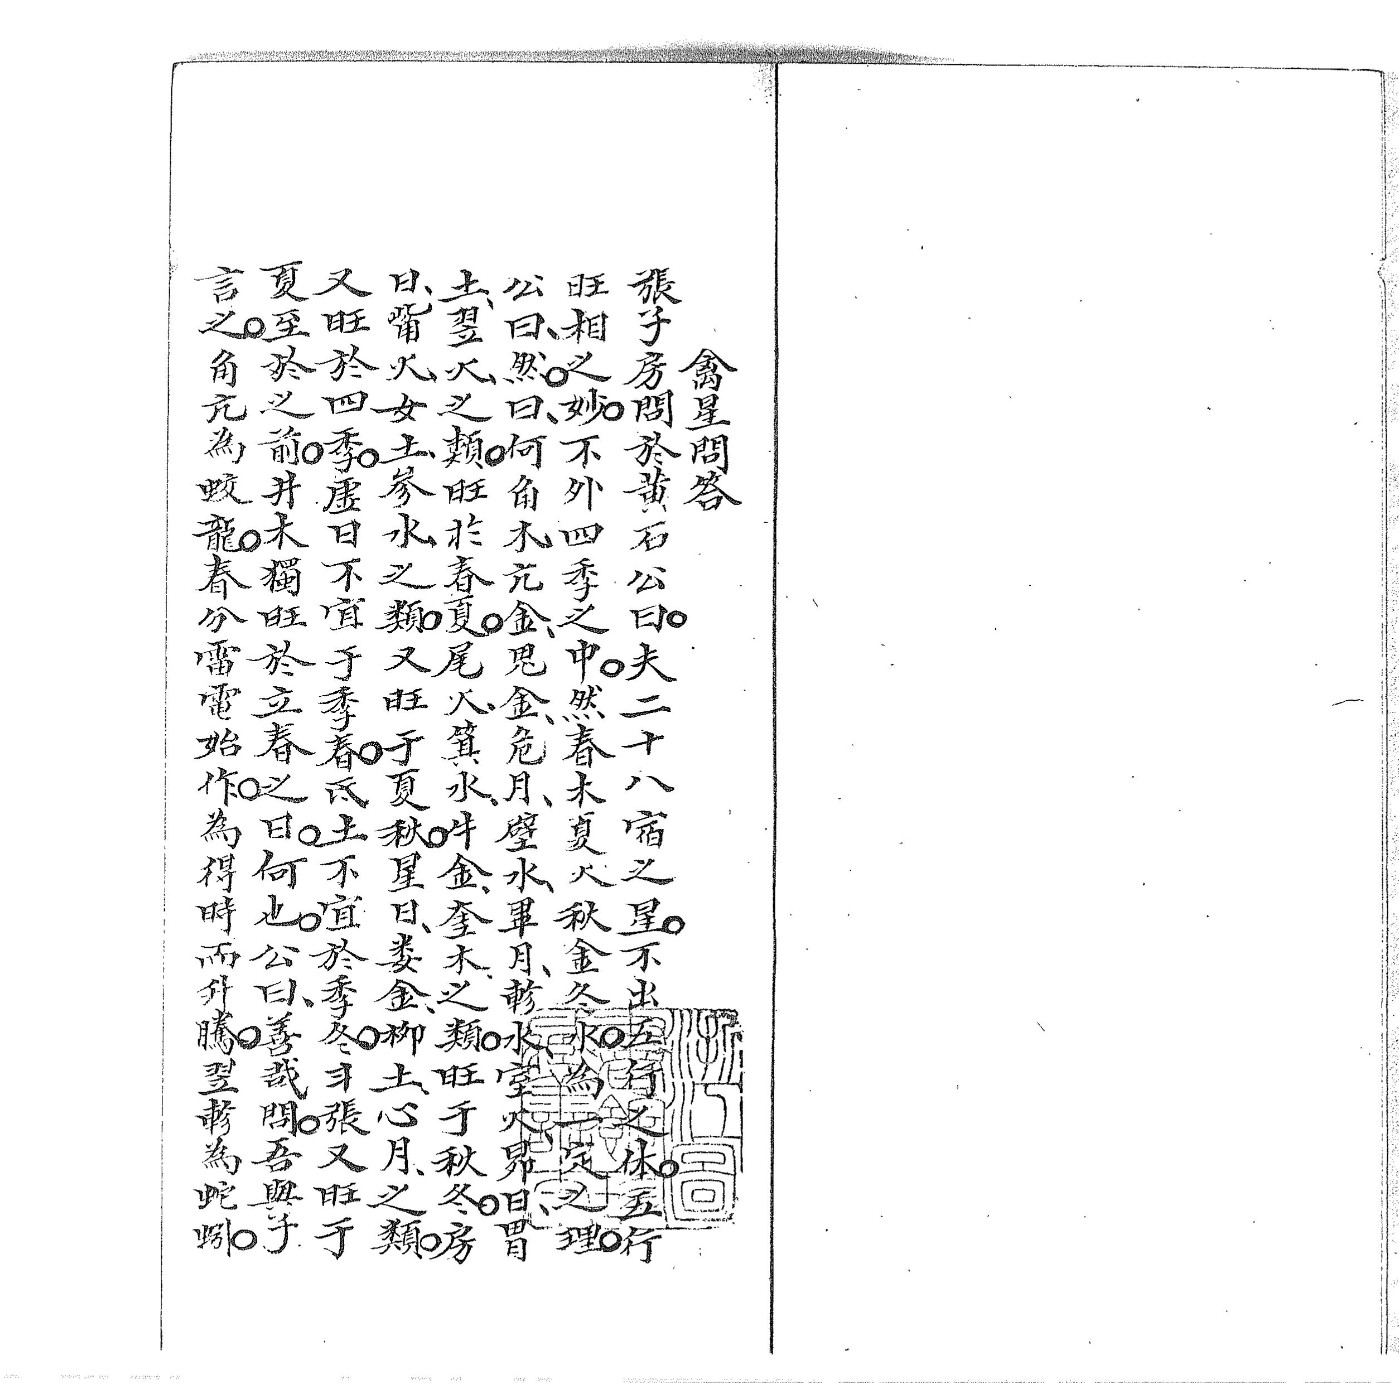 禽星問答
張子房問於黃石公曰。夫二十八宿之星。不出五行之休。五行
旺相之妙。不外四季之中。然春木夏火秋金冬水。為一定之理。
公曰、然。曰、何角木、亢金、鬼金、危月、壁水、畢月、軫水、室火、昴日、胃
土、翌火、之類。旺於春夏。尾火、箕水、牛金、奎木、之類。旺于秋冬。房
日、觜火、女土、參水、之類。又旺于夏秋。星日、婁金、柳土、心月、之類。
又旺於四季。虛日不宜于季春。氐土不宜於季冬。斗張又旺于
夏至於之前。井木獨旺於立春之日。何也。公曰、善哉問。吾與子
言之。角亢為蛟龍。春分雷電始作。為得時而升騰。翌軫為蛇蚓。